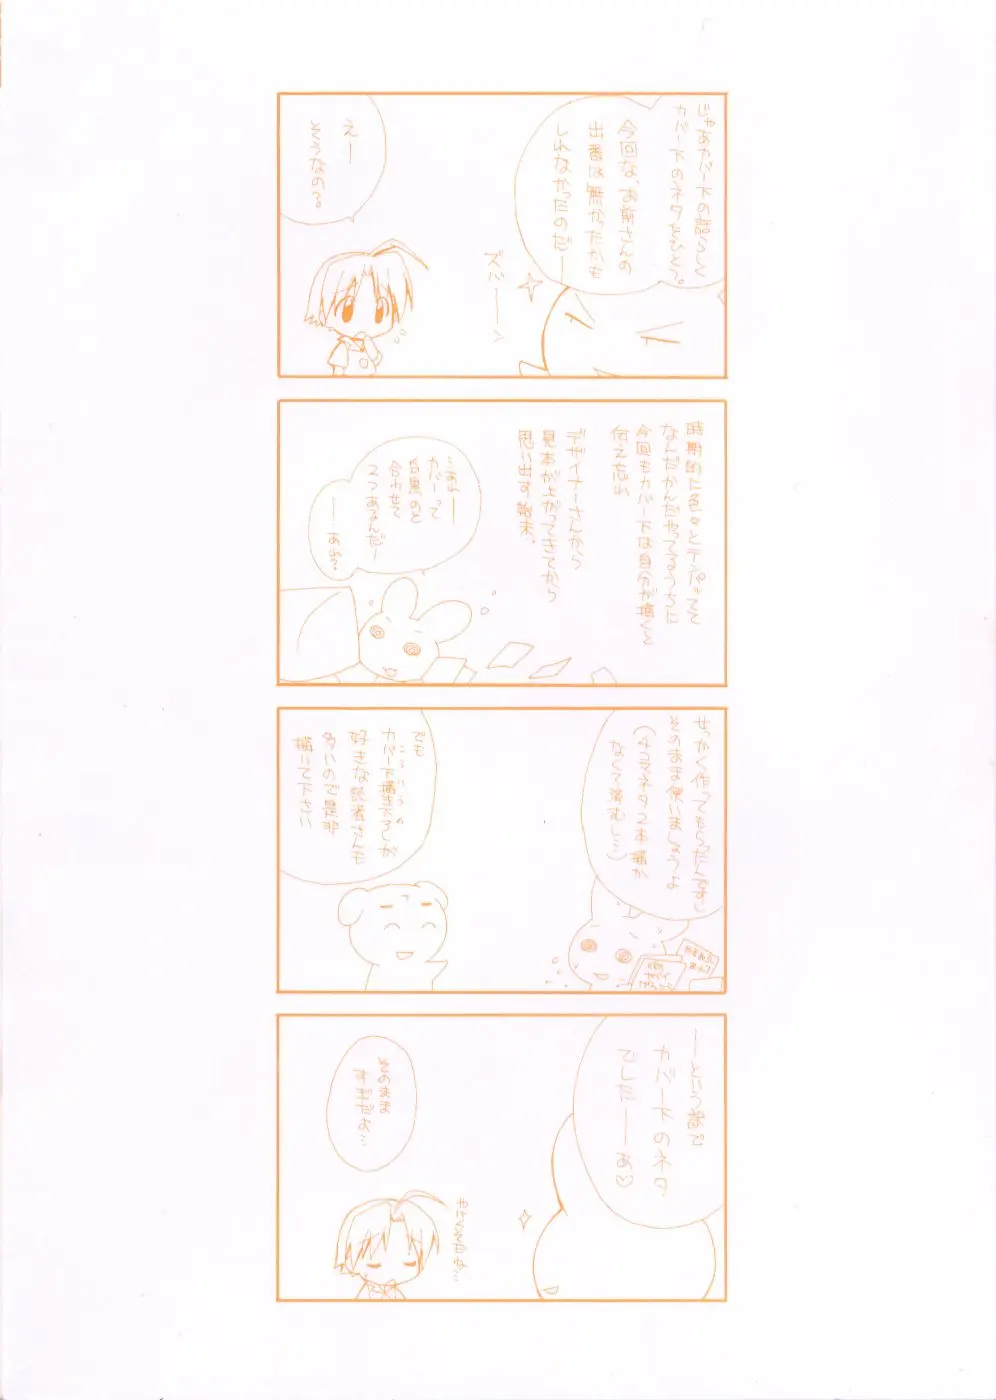 じゃあカバー下の話らしく
カバー下のネタをひとつ。
今回な、お前さんの
出番は無かったかも
しれなかったのだ――
ズバ――ン
えー
そうなの?
時期的に色々とテンパってて
なんだかんだやってるうちに
今回もカバー下は自分が描くと
伝え忘れ
デザイナーさんから
見本が上がってきてから
思い出す始末。
カバーって
白黒のと
合わせて
2つあるんだー
――あれ?
せっかく作ってもらったんですし
そのまま使いましょうよ
(4コマネタ2本描か
なくて済むし…)
でも
こういうの
カバー下描き下ろしが
好きな読者さんも
多いので是非
描いて下さい
――という訳で
カバー下のネタ
でしたーーぁ♡
そのまま
すぎだよ…
やけくそだね…